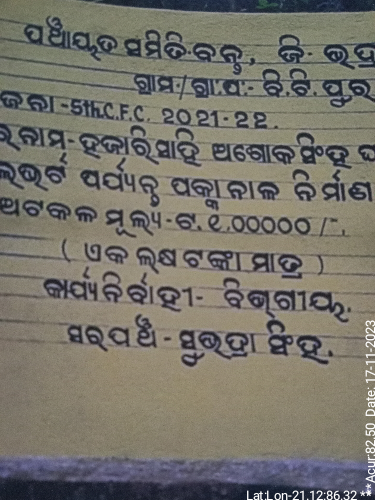 ପଞ୍ଚାୟତ ସମିତି-ବନ୍ତ, ଜି- ଭଦ୍ର
ଗ୍ରାମ/ଗ୍ରା.ପ.- ବି.ବି.ପୁର
ଜନା-5th.C.F.C. 2021-22.
ରନାମ- ହଜାରିସାହି ଅଶୋକ ସିଂହ ଘ
ଲଭର୍ଟ ପର୍ଯ୍ୟନ୍ତ ପକ୍କା ନାଳ ନିର୍ମାଣ
ଅଟକଳ ମୂଲ୍ୟ-ଟ.୧.00000/-.
( ଏକ ଲକ୍ଷ ଟଙ୍କା ମାତ୍ର )
କାର୍ଯ୍ୟନିର୍ବାହୀ- ବିଭାଗୀୟ.
ସରପଞ୍ଚ - ସୁଭଦ୍ରା ସିଂହ.
Lat:Lon-21.12:86.32 *** Acur:82.50 Date: 17-11-2023